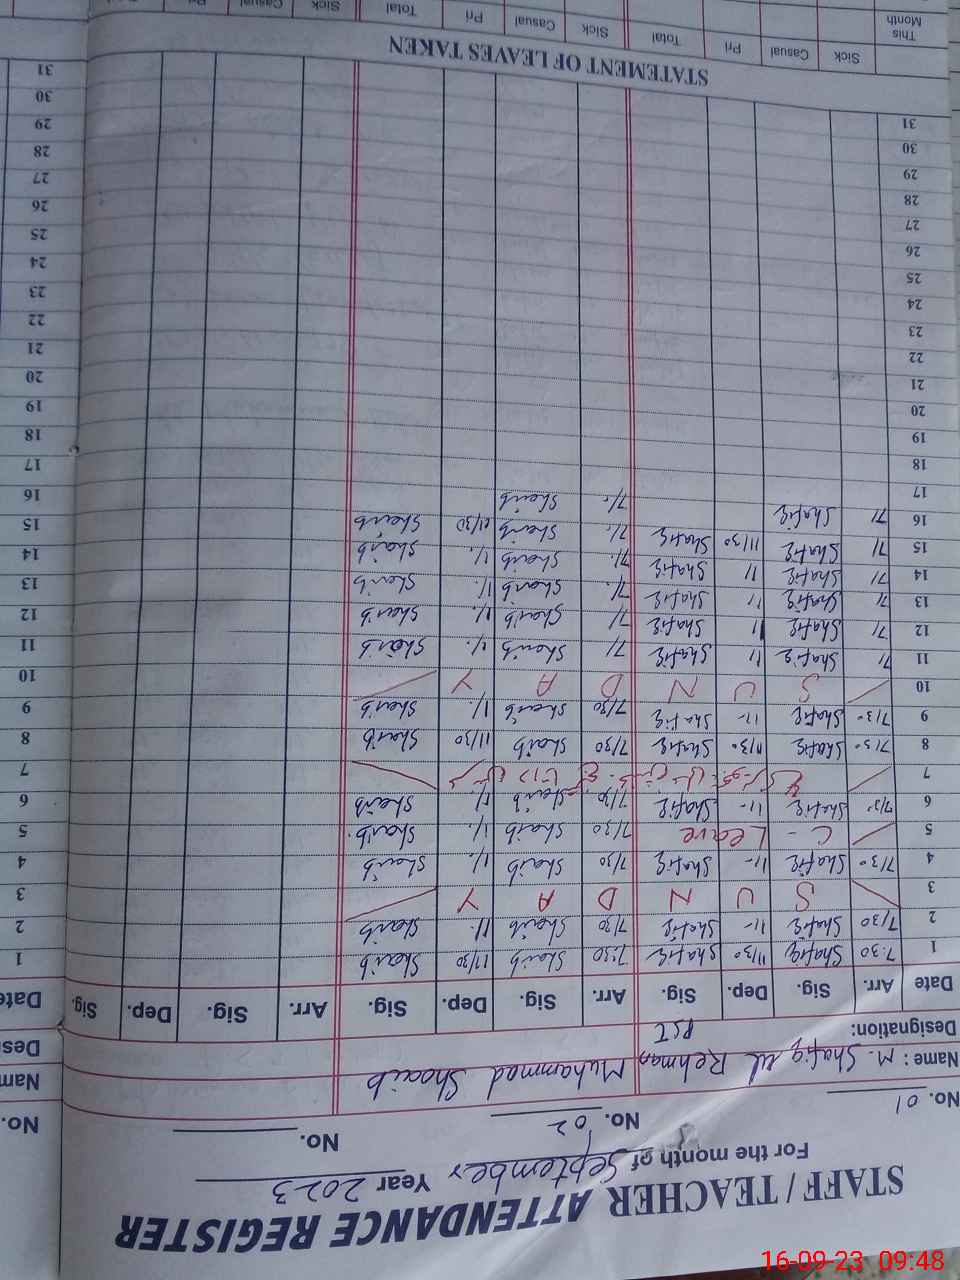 STAFF / TEACHER ATTENDANCE REGISTER
For the month of September Year 2023
No. 01 No. 02 No.
Name : M. Shafiq ul Rehman Muhammad Shoaib
Designation: PST
Date Arr. Sig. Dep. Sig. Arr. Sig. Dep. Sig. Arr. Sig. Dep. Sig. Date
1 7:30 Shafiq 11/30 Shafiq 7:30 Shoaib 11/30 Shoaib 1
2 7/30 Shafiq 11- Shafiq 7/30 Shoaib 11. Shoaib 2
3 S U N D A Y 3
4 7/30 Shafiq 11- Shafiq 7/30 Shoaib 11. Shoaib 4
5 C - Leave 7/30 Shoaib 11. Shoaib 5
6 7/30 Shafiq 11- Shafiq 7/30 Shoaib 11. Shoaib 6
7 7
8 7/30 Shafiq 11/30 Shafiq 7/30 Shoaib 11/30 Shoaib 8
9 7/30 Shafiq 11- Shafiq 7/30 Shoaib 11. Shoaib 9
10 S U N D A Y 10
11 71 Shafiq 11 Shafiq 71 Shoaib 11. Shoaib 11
12 71 Shafiq 11 Shafiq 71 Shoaib 11. Shoaib 12
13 71 Shafiq 11 Shafiq 71. Shoaib 11. Shoaib 13
14 71 Shafiq 11 Shafiq 71. Shoaib 11. Shoaib 14
15 71 Shafiq 11/30 Shafiq 71. Shoaib 11/30 Shoaib 15
16 71 Shafiq 71. Shoaib 16
17 17
18 18
19 19
20 20
21 21
22 22
23 23
24 24
25 25
26 26
27 27
28 28
29 29
30 30
31 31
STATEMENT OF LEAVES TAKEN
Sick Casual Pri Total Sick Casual Pri Total Sick Casual Pri
This Month
No.
Nam
Desi
16-09-23 09:48